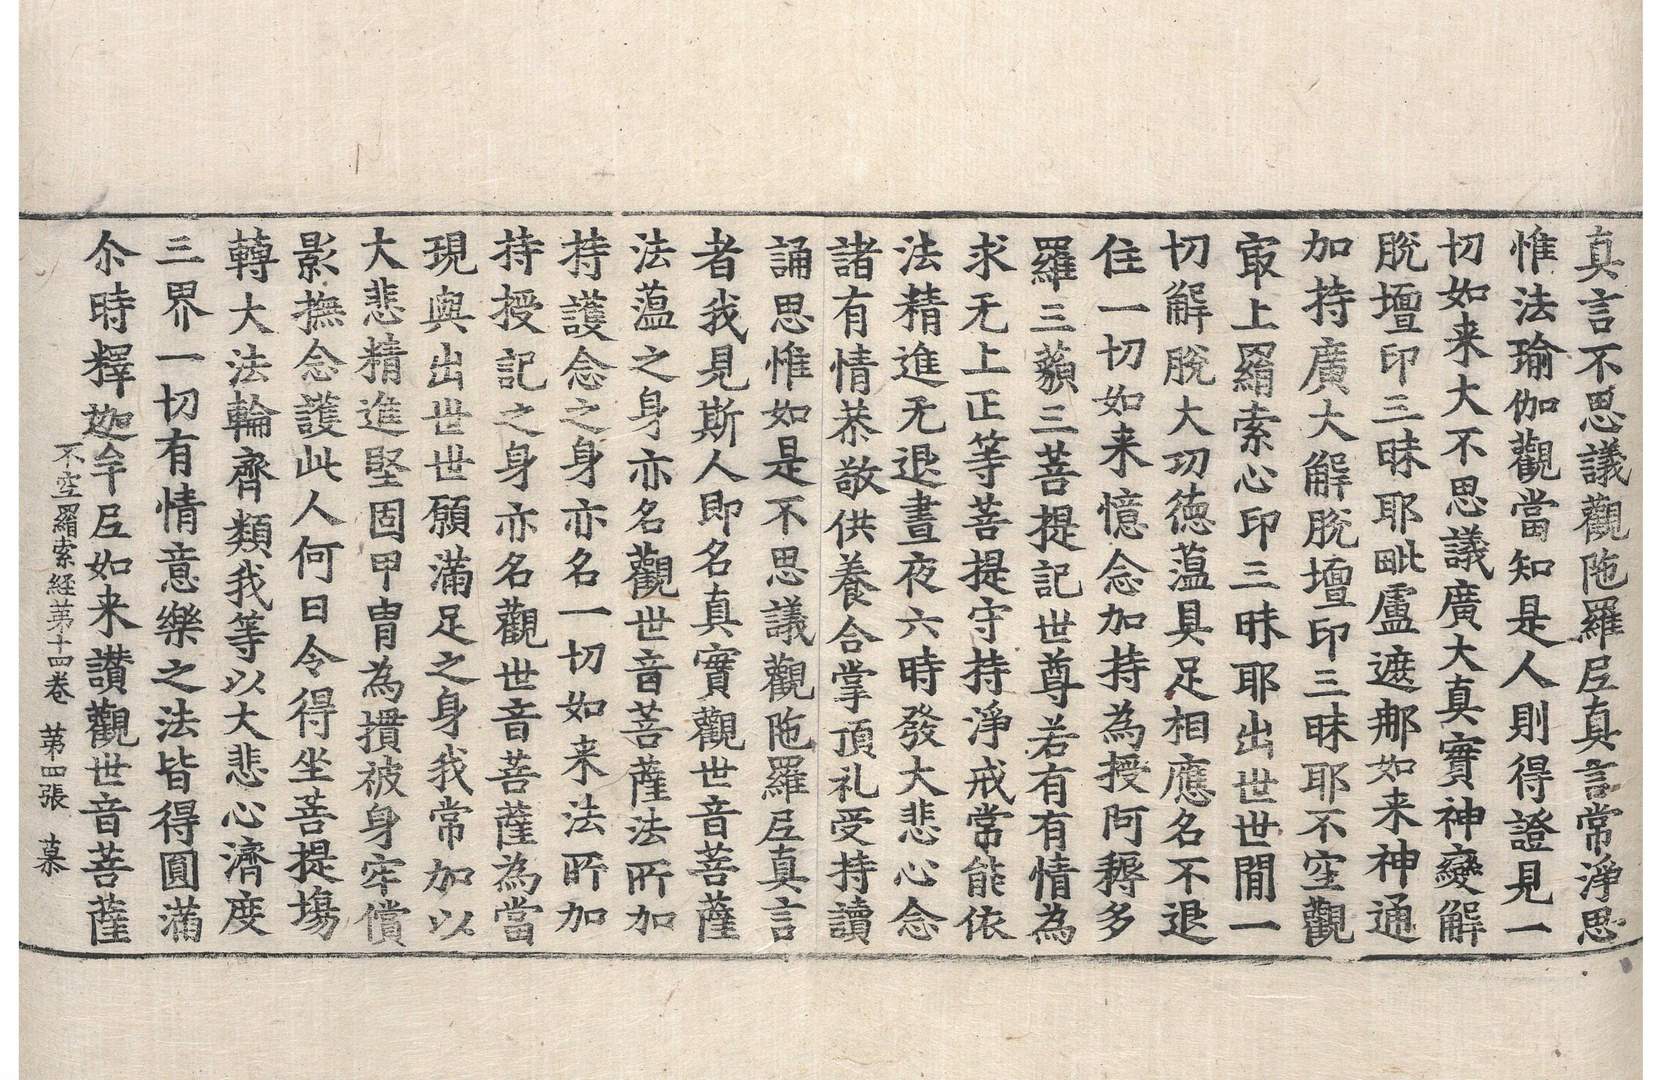 真言不思議觀陁羅尼真言常淨思
惟法瑜伽觀當知是人則得證見一
切如来大不思議廣大真實神變解
脫壇印三昧耶毗盧遮那如来神通
加持廣大解脫壇印三昧耶不空觀
㝡上羂索心印三昧耶出世世間一
切解脫大功德藴具足相應名不退
住一切如来憶念加持為授阿耨多
羅三藐三菩提記世尊若有有情為
求无上正等菩提守持淨戒常能依
法精進无退晝夜六時發大悲心念
諸有情恭敬供養合掌頂礼受持讀
誦思惟如是不思議觀陁羅尼真言
者我見斯人即名真實觀世音菩薩
法藴之身亦名觀世音菩薩法所加
持護念之身亦名一切如来法所加
持授記之身亦名觀世音菩薩為當
現與出世世願滿足之身我常加以
大悲精進堅固甲冑為擐被身牢償
影撫念護此人何日令得坐菩提場
轉大法輪齊類我等以大悲心濟度
三界一切有情意樂之法皆得圓滿
尒時釋迦牟尼如来讚觀世音菩薩
不空羂索経苐十四卷 苐四張 慕